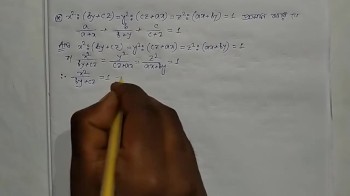 ⊗ x²:(by+cz)=y²:(cz+ax)=z²:(ax+by)=1
a/(a+x) + b/(b+y) + c/(c+z) = 1
x²:(by+cz)=y²:(cz+ax)=z²:(ax+by)=1
x²/(by+cz) = y²/(cz+ax) = z²/(ax+by) = 1
∴ x²/(by+cz) = 1